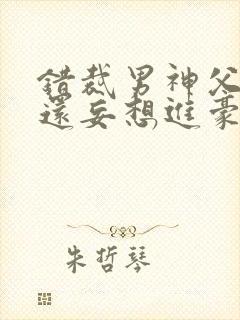 錯裁男神父
還妄想進豪
朱哲琴